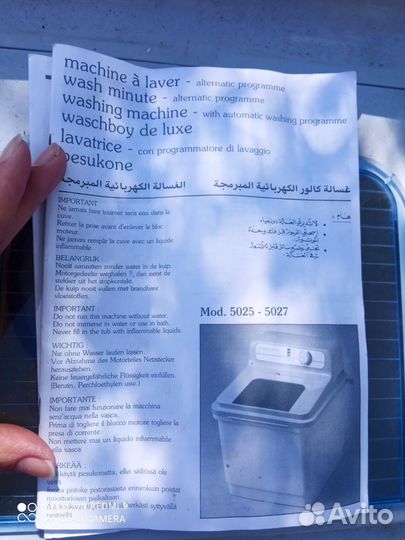 machine à laver - alternatic programme
wash minute - alternatic programme
washing machine - with automatic washing programme
waschboy de luxe
lavatrice - con programmatore di lavaggio
pesukone
غسالة كالور الكهربائية المبرمجة
الغسالة الكهربائية المبرمجة
IMPORTANT
Ne jamais faire tourner sans eau dans la
cuve.
Retirer la prise avant d'enlever le bloc
moteur.
Ne jamais remplir la cuve avec un liquide
inflammable.
BELANGRIJK
Nooit aanzetten zonder water in de kuip.
Motorgedeelte weghalen ?, dan eerst de
stekker uit het stopkontakt.
De kuip nooit vullen met brandbare
vloeistoffen.
IMPORTANT
Do not run this machine without water.
Do not immerse in water or use in bath.
Never fill in the tub with inflammable liquids.
WICHTIG
Nie ohne Wasser laufen lassen.
Vor Abnahme des Motorteiles Netzstecker
herausziehen.
Keine feuergefährliche Flüssigkeit einfüllen.
(Benzin, Perchloethylen usw.)
IMPORTANTE :
Non fare mai funzionare la macchina
senz'acqua nella vasca.
Prima di togliere il blocco motore togliere la
presa di corrente.
Non mettere mai un liquido infiammabile
nella vasca
هام :
Mod. 5025 - 5027
käytä pesukonetta, ellei säiliössä ole
vettä.
Irrota pistoke pistorasiasta ennenkuin poistat
moottoriosan paikaltaan.
syttyvällä
nesteellä
REDMI
CAMERA
Avito